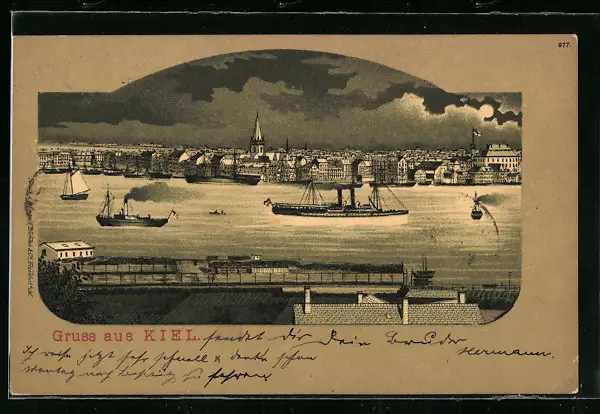 977.
Gruss aus KIEL. sendet dir Dein Bruder
Hermann.
Ich reise jetzt sehr schnell & denke schon
Montag nach zu fahren